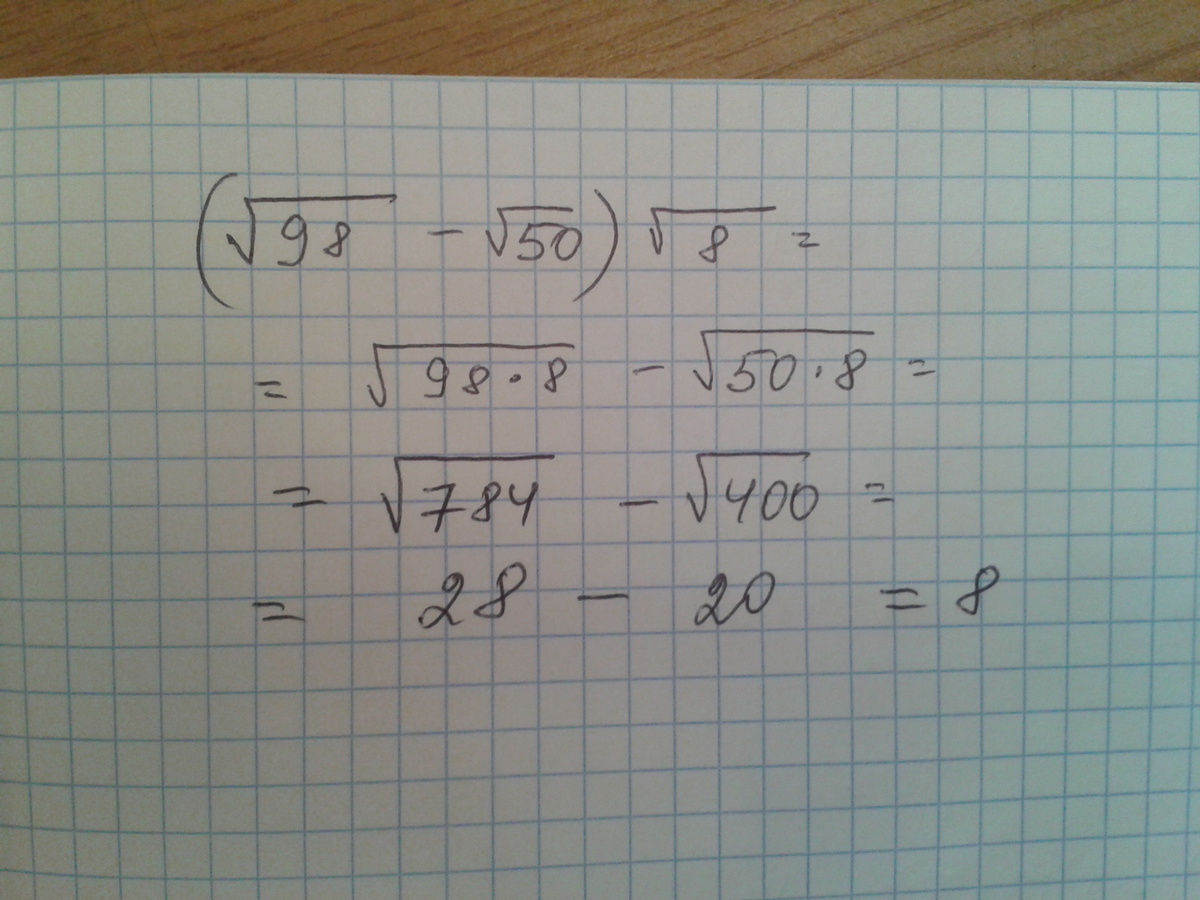 (√98 - √50) √8 =
= √98·8 - √50·8 =
= √784 - √400 =
= 28 - 20 = 8